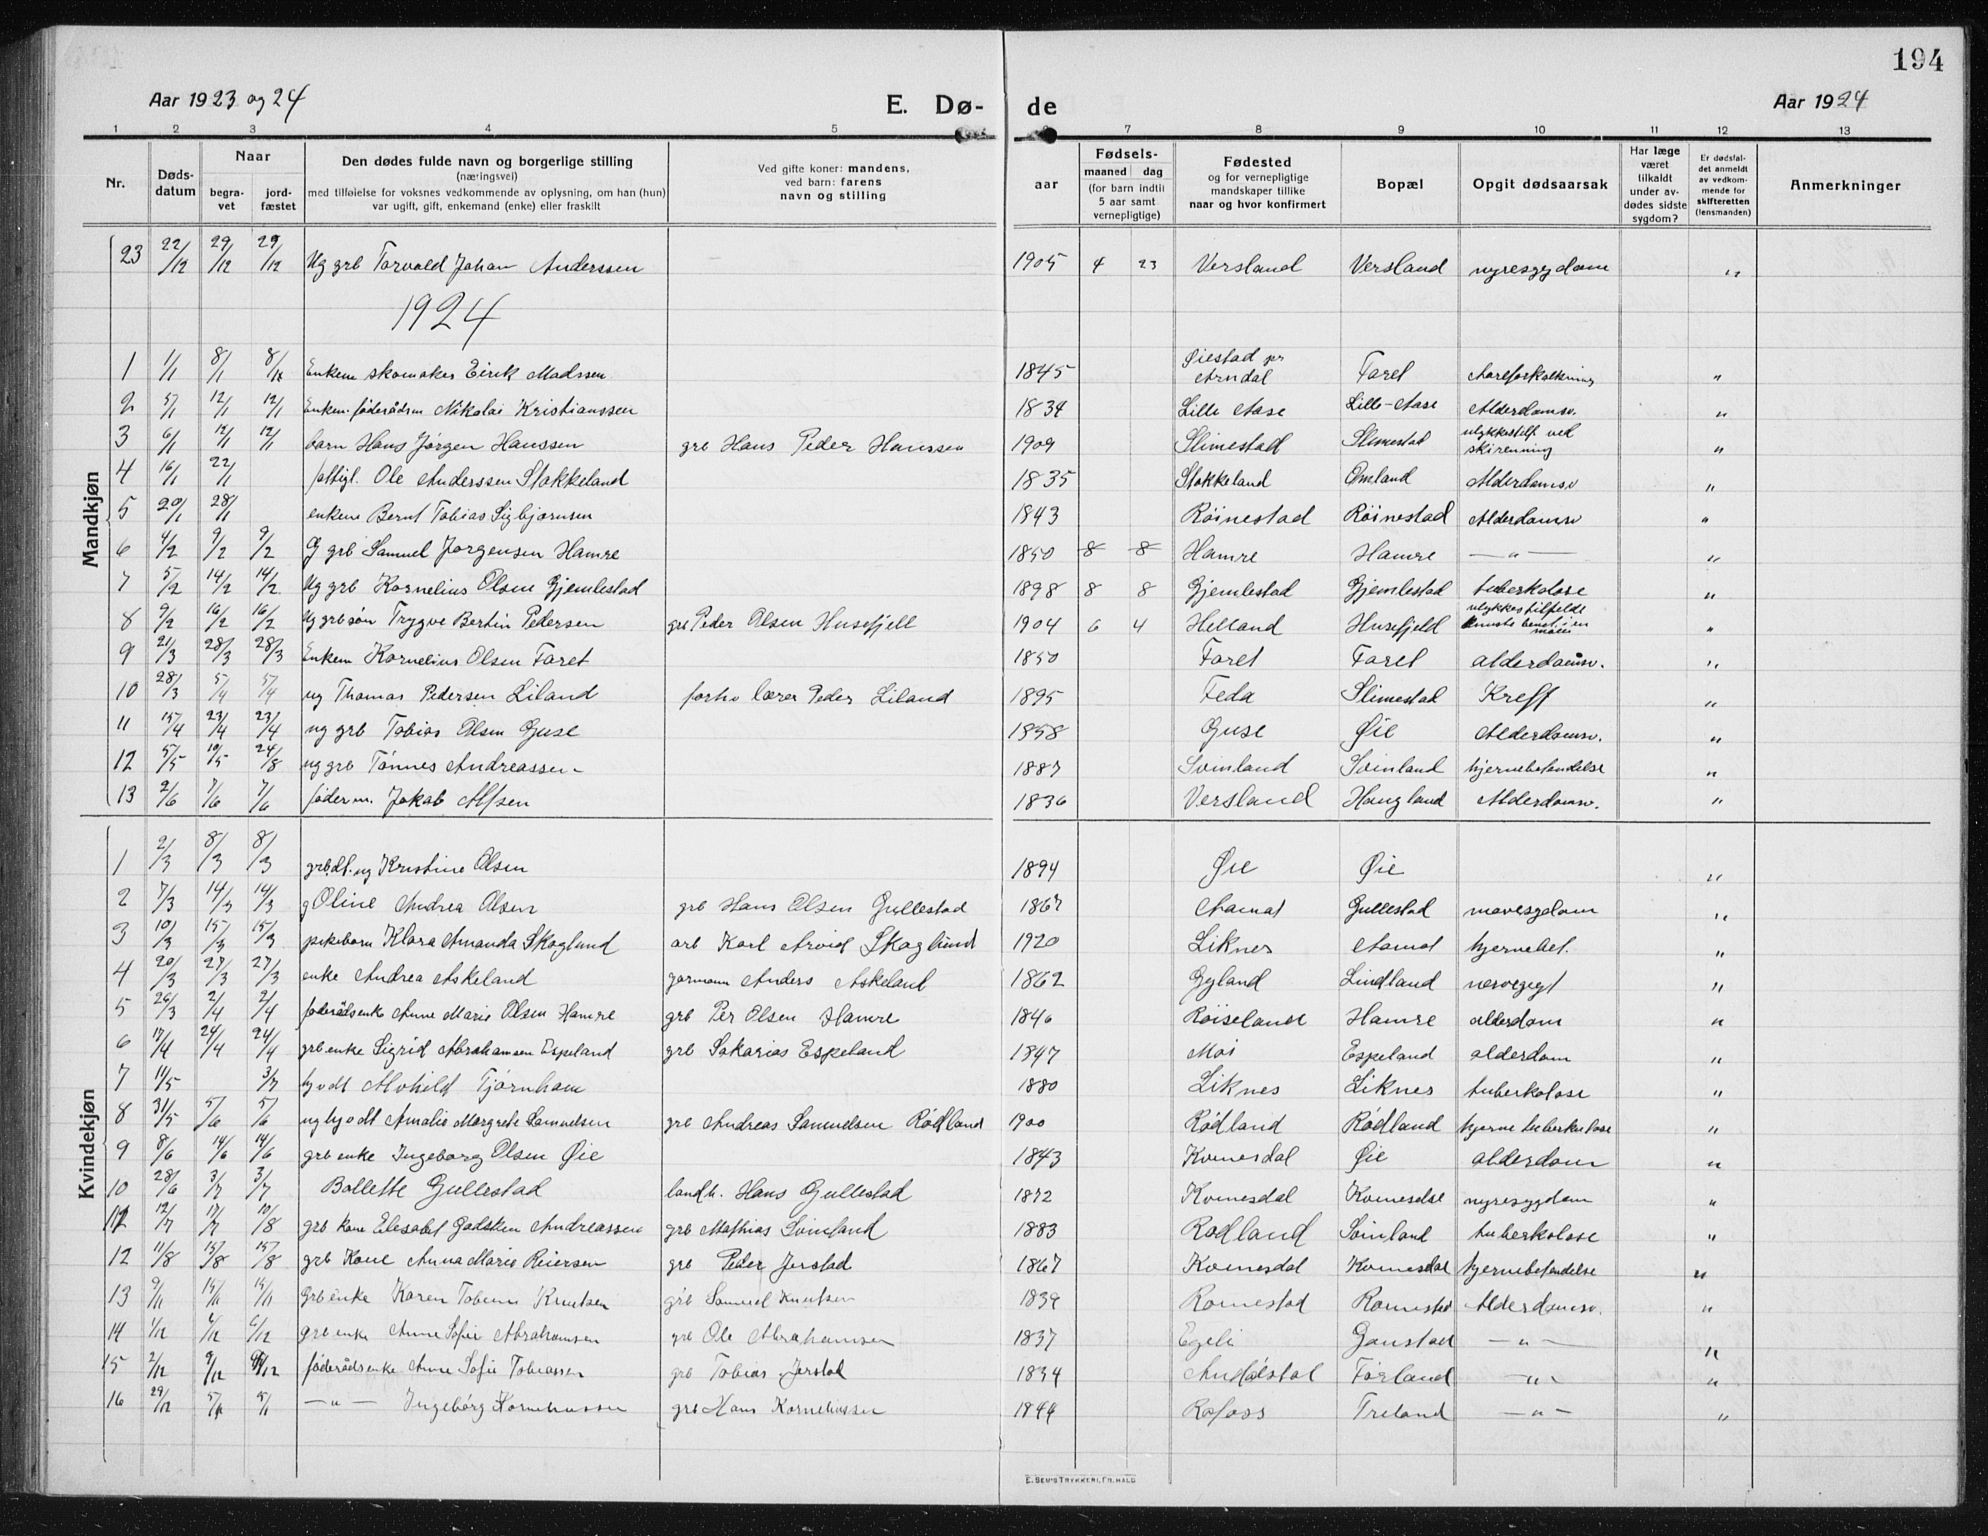 194
Aar 1923 og 24 E. Dø- de Aar 1924
1 2 3 4 5 7 8 9 10 11 12 13
Nr. Døds-datum Naar begra-vet jord-fæstet Den dødes fulde navn og borgerlige stilling (næringsvei) med tilføielse for voksnes vedkommende av oplysning, om han (hun) var ugift, gift, enkemand (enke) eller fraskilt Ved gifte koner: mandens, ved barn: farens navn og stilling aar Fødsels- maaned dag (for barn indtil 5 aar samt vernepligtige) Fødested og for vernepligtige mandskaper tillike naar og hvor konfirmert Bopæl Opgit dødsaarsak Har læge været tilkaldt under av-dødes sidste sygdom? Er dødsfal-det anmeldt av vedkom-mende for skifteretten (lensmanden) Anmerkninger
Mandkjøn
23 22/12 29/12 29/12 Ug grb Torvald Johan Anderssen 1905 4 23 Versland Versland nyresygdom "
1924
1 1/1 8/1 8/1 Enkem skomaker Eirik Madssen 1845 Øiestad pr Arndal Faret Aareforkalkning "
2 5/1 12/1 12/1 Enkem. føderådsm Nikolai Kristianssen 1834 Lille Aase Lille-Aase Alderdomsv. "
3 6/1 12/1 12/1 barn Hans Jørgen Hanssen grb Hans Peder Hanssen 1909 Slimestad Slimestad ulykkestilf ved skirenning "
4 16/1 22/1 fattigl. Ole Anderssen Stokkeland 1835 Stokkeland Omland Alderdomsv "
5 20/1 28/1 enkem Bernt Tobias Sigbjørnsen 1843 Röinestad Röinestad Alderdomsv "
6 4/2 9/2 9/2 G grb Samuel Jørgensen Hamre 1850 8 8 Hamre Hamre — " — "
7 5/2 14/2 14/2 Ug grb Kornelius Olsen Gjemlestad 1898 8 8 Gjemlestad Gjemlestad tuberkolose "
8 9/2 16/2 16/2 Ug grb søn Trygve Bertin Pedersen grb Peder Olsen Husefjell 1904 6 4 Helland Husefjeld ulykkestilfelde knuste benet i en "
9 21/3 28/3 28/3 Enkem Kornelius Olsen Faret 1850 Faret Faret alderdomsv. "
10 28/3 5/4 5/4 ug Thomas Pedersen Liland forhv lærer Peder Liland 1895 Feda Slimestad Kreft "
11 15/4 23/4 23/4 ug grb Tobias Olsen Guse 1858 Guse Øie Alderdomsv. "
12 5/5 10/5 24/8 ug grb Tønnes Andreassen 1887 Svinland Svinland hjernebetendelse "
13 2/6 7/6 7/6 føderm. Jakob Alfsen 1836 Versland Haugland Alderdomsv. "
Kvindekjøn
1 2/3 8/3 8/3 grb.dt. ug Kristine Olsen 1894 Øie Øie "
2 7/3 14/3 14/3 g Oline Andrea Olsen grb Hans Olsen Gullestad 1867 Aamot Gullestad mavesygdom "
3 10/3 15/3 15/3 pikebarn Klara Amanda Skoglund arb Karl Arvid Skoglund 1920 Liknes Aamot hjernebet. "
4 20/3 27/3 27/3 enke Andrea Askeland garmann Anders Askeland 1862 Gyland Lindland nervegigt "
5 26/3 2/4 2/4 føderådsenke Anne Marie Olsen Hamre grb Per Olsen Hamre 1846 Røiseland Hamre alderdom "
6 17/4 24/4 24/4 grb enke Sigrid Abrahamsen Espeland grb Sakarias Espeland 1847 Moi Espeland alderdom "
7 11/5 3/7 hvdt Alvhild Tjørnhom 1880 Liknes Liknes tuberkolose "
8 31/5 5/6 5/6 ug hvdt Amalie Margrete Samuelsen grb Andreas Samuelsen Rødland 1900 Rødland Rødland hjerne tuberkulose "
9 8/6 14/6 14/6 grb enke Ingeborg Olsen Øie 1843 Kvinesdal Øie alderdom "
10 28/6 3/7 3/7 Bollette Gullestad landh. Hans Gullestad 1872 Kvinesdal Kvinesdal nyresygdom "
11 12/7 17/7 10/8 grb kone Elesabet Gadsken Andreassen grb Mathias Svinland 1883 Rødland Svinland tuberkolose "
12 11/8 15/8 15/8 grb Kone Anna Marie Reiersen grb Peder Jerstad 1867 Kvinesdal Kvinesdal hjernebetendelse "
13 9/11 15/11 15/11 Grb enke Karen Tobine Knutsen grb Samuel Knutsen 1839 Romestad Romestad Alderdomsv. "
14 1/12 6/12 6/12 grb enke Anne Sofie Abrahamsen grb Ole Abrahamsen 1837 Egeli Gaustad — " — "
15 2/12 9/12 9/12 føderådsenke Anne Sofie Tobiassen grb Tobias Jerstad 1834 Førland — " — "
16 29/12 5/1 5/1 — " — Ingeborg Korneliussen grb Hans Korneliussen 1844 Rafoss Treland — " — "
E. SEM'S TRYKKERI, FR.HALD